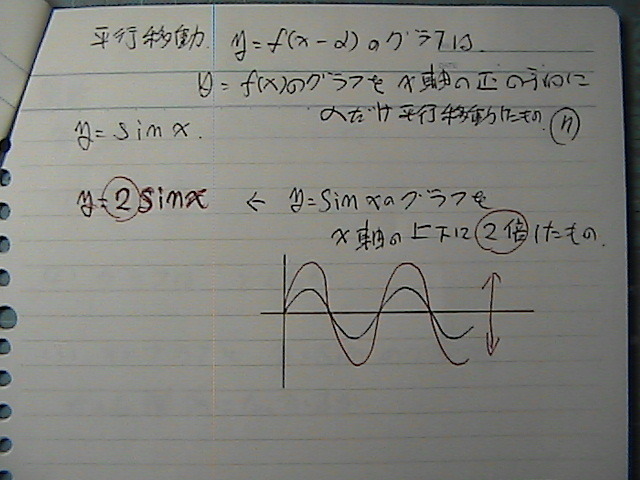 平行移動. y=f(x-α)のグラフは.
y=f(x)のグラフを x軸の正の方向に
αだけ平行移動したもの.
y=sinx.
y=2sinx ← y=sinxのグラフを
x軸の上下に2倍したもの.